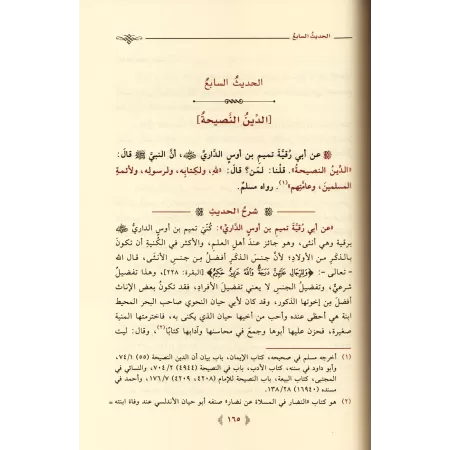 الحديث السابعُ
الحديثُ السابعُ
[الدِّينُ النَّصيحةُ]
عن أبي رُقيَّةَ تميمِ بن أوسٍ الدَّاريِّ ﵁، أنَّ النبيَّ ﷺ قالَ:
«الدِّينُ النصيحةُ». قلْنا: لمَن؟ قالَ: «للهِ، ولكِتابِه، ولرسولِه، ولأئمةِ
المسلمينَ، وعامَّتِهم»(١). رواه مسلمٌ.
شرحُ الحديثِ
«عن أبي رُقيَّةَ تميمِ بن أوسٍ الدَّاريِّ»: كُنِّيَ تميمُ بن أوسٍ الداريُّ ﵁
برقيةَ وهي أنثى، وهو جائز عندَ أهلِ العلمِ، والأكثر في الكُنيةِ أن تكونَ
بالذكرِ من الأولادِ؛ لأنَّ جنسَ الذكرِ أفضلُ مِن جنسِ الأنثى، قال الله
- تعالى -: ﴿وَلِلرِّجَالِ عَلَيْهِنَّ دَرَجَةٌ وَاللَّهُ عَزِيزٌ حَكِيمٌ﴾ [البقرة: ٢٢٨]، وهذا تفضيلٌ
شرعيٌّ، وتفضيلُ الجنسِ لا يعني تفضيلَ الأفرادِ، فقد تكونُ بعضُ الإناثِ
أفضلَ مِن إخوتِها الذكورِ، وقد كان لأبي حيان النحوي صاحب البحر المحيط
ابنة هي أحظى عنده وأحب من أخيها حيان الذي يكنى به، فاخترمتها المنية
صغيرة، فحزن عليها أبوها وجمعَ في محاسنِها وآدابها كتابًا(٢)، وقال: ليت
(١) أخرجه مسلم في صحيحه، كتاب الإيمان، باب بيان أن الدين النصيحة (٥٥) ٧٤/١،
وأبو داود في سننه، كتاب الأدب، باب في النصيحة (٤٩٤٤) ٧٠٤/٢، والنسائي في
المجتبى، كتاب البيعة، باب النصيحة للإمام (٤٢٠٨، ٤٢٠٩) ١٧٦/٧، وأحمد في
مسنده (١٦٩٤٠) ١٣٨/٢٨.
(٢) هو كتاب «النضار في المسلاة عن نضار» صنفه أبو حيان الأندلسي عند وفاة ابنته =
١٦٥